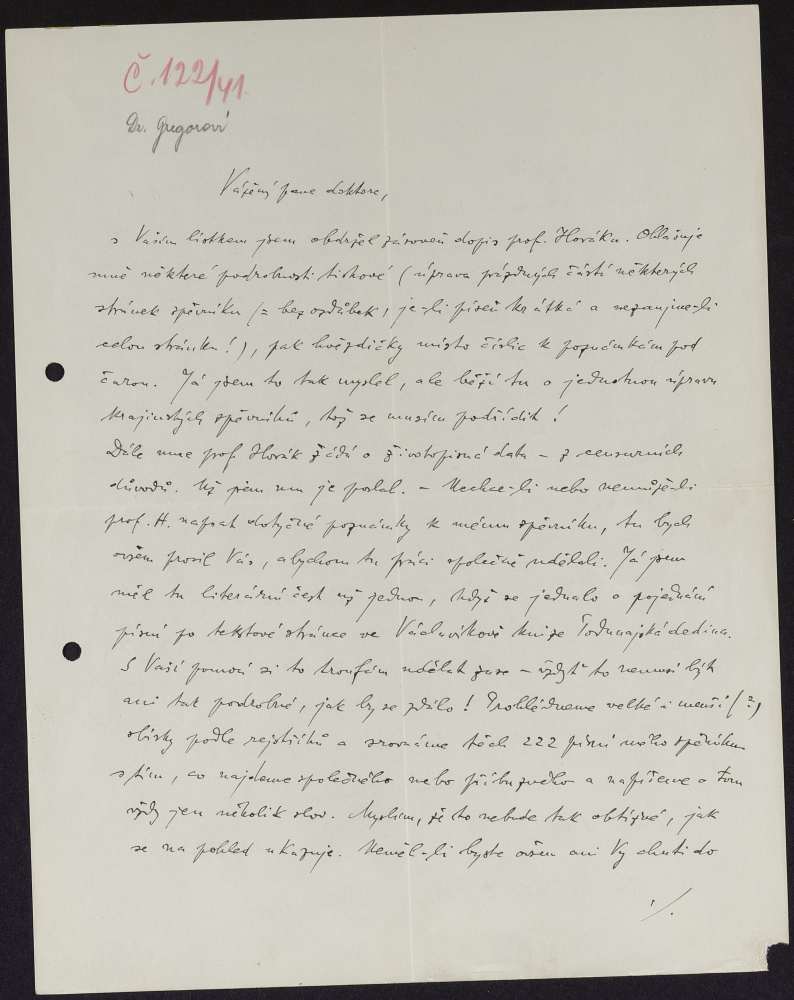 Č. 122/41.
Dr. Gregorovi
Vážený pane doktore,
s Vaším lístkem jsem obdržel zároveň dopis prof. Horáka. Ohlašuje
mně některé podrobnosti tiskové (úprava prázdných částí některých
stránek zpěvníku (= bez ozdůbek, je-li píseň krátká a nezaujme-li
celou stránku!), pak hvězdičky místo číslic k poznámkám pod
čarou. Já jsem to tak myslel, ale běží tu o jednotnou úpravu
krajinských zpěvníků, tož se musím podřídit!
Dále mne prof. Horák žádá o životopisná data – z censurních
důvodů. Už jsem mu je poslal. – Nechce-li nebo nemůže-li
prof. H. napsat dotyčné poznámky k mému zpěvníku, tu bych
ovšem prosil Vás, abychom tu práci společně udělali. Já jsem
měl tu literární čest už jednou, když se jednalo o pojednání
písní po textové stránce ve Václavíkově knize Podunajská dedina.
S Vaší pomocí si to troufám udělat zase – vždyť to nemusí být
ani tak podrobné, jak by se zdálo! Prohlédneme velké i menší (?)
sbírky podle rejstříků a srovnáme těch 222 písní mého zpěvníku
s tím, co najdeme společného nebo příbuzného a napíšeme o tom
vždy jen několik slov. Myslím, že to nebude tak obtížné, jak
se na pohled ukazuje. Neměl-li byste ovšem ani Vy chuti do
./.